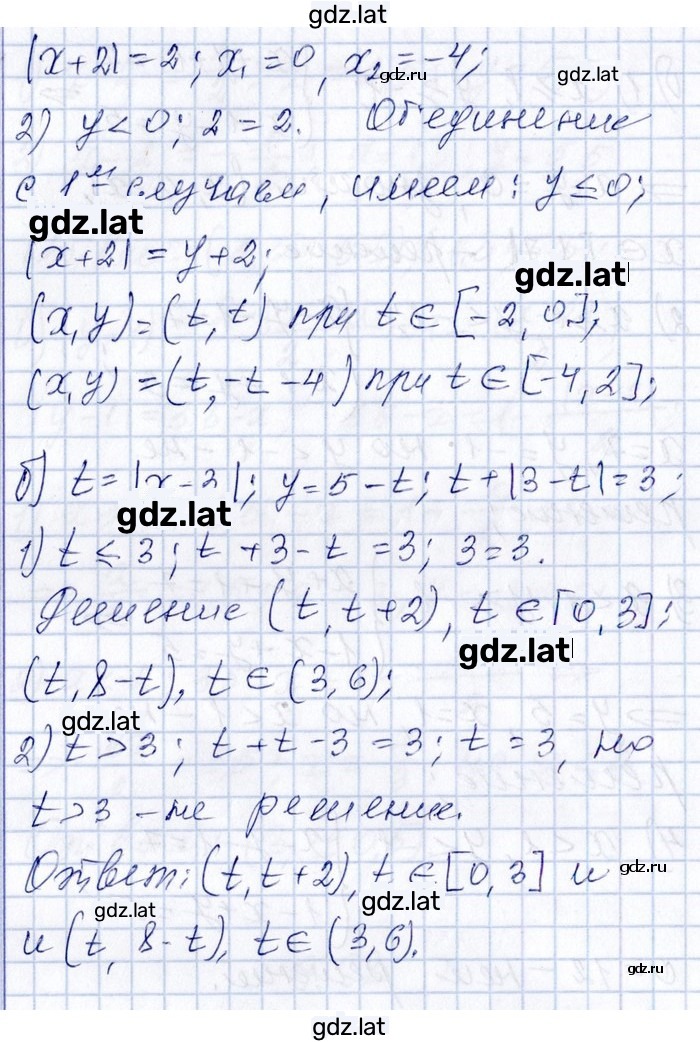 gdz.lat
|x+2| = 2; x₁ = 0, x₂ = -4;
gdz.ru
gdz.lat
2) y < 0; 2 = 2. Объединение
с 1ᵐ случаем, имеем: y ≤ 0;
gdz.lat
|x+2| = y+2;
gdz.lat
(x,y) = (t, t) при t ∈ [-2, 0];
(x,y) = (t, -t -4) при t ∈ [-4, 2];
б) t = |x-3|; y = 5 - t; t + |3 - t| = 3;
gdz.lat
1) t ≤ 3; t + 3 - t = 3; 3 = 3.
Решение (t, t+2), t ∈ [0, 3];
gdz.lat
(t, 8-t), t ∈ (3, 6);
gdz.lat
2) t > 3; t + t - 3 = 3; t = 3, но
t > 3 - не решение.
Ответ: (t, t+2), t ∈ [0, 3] и
gdz.ru
gdz.lat
gdz.lat
и (t, 8-t), t ∈ (3, 6).
gdz.ru
gdz.lat